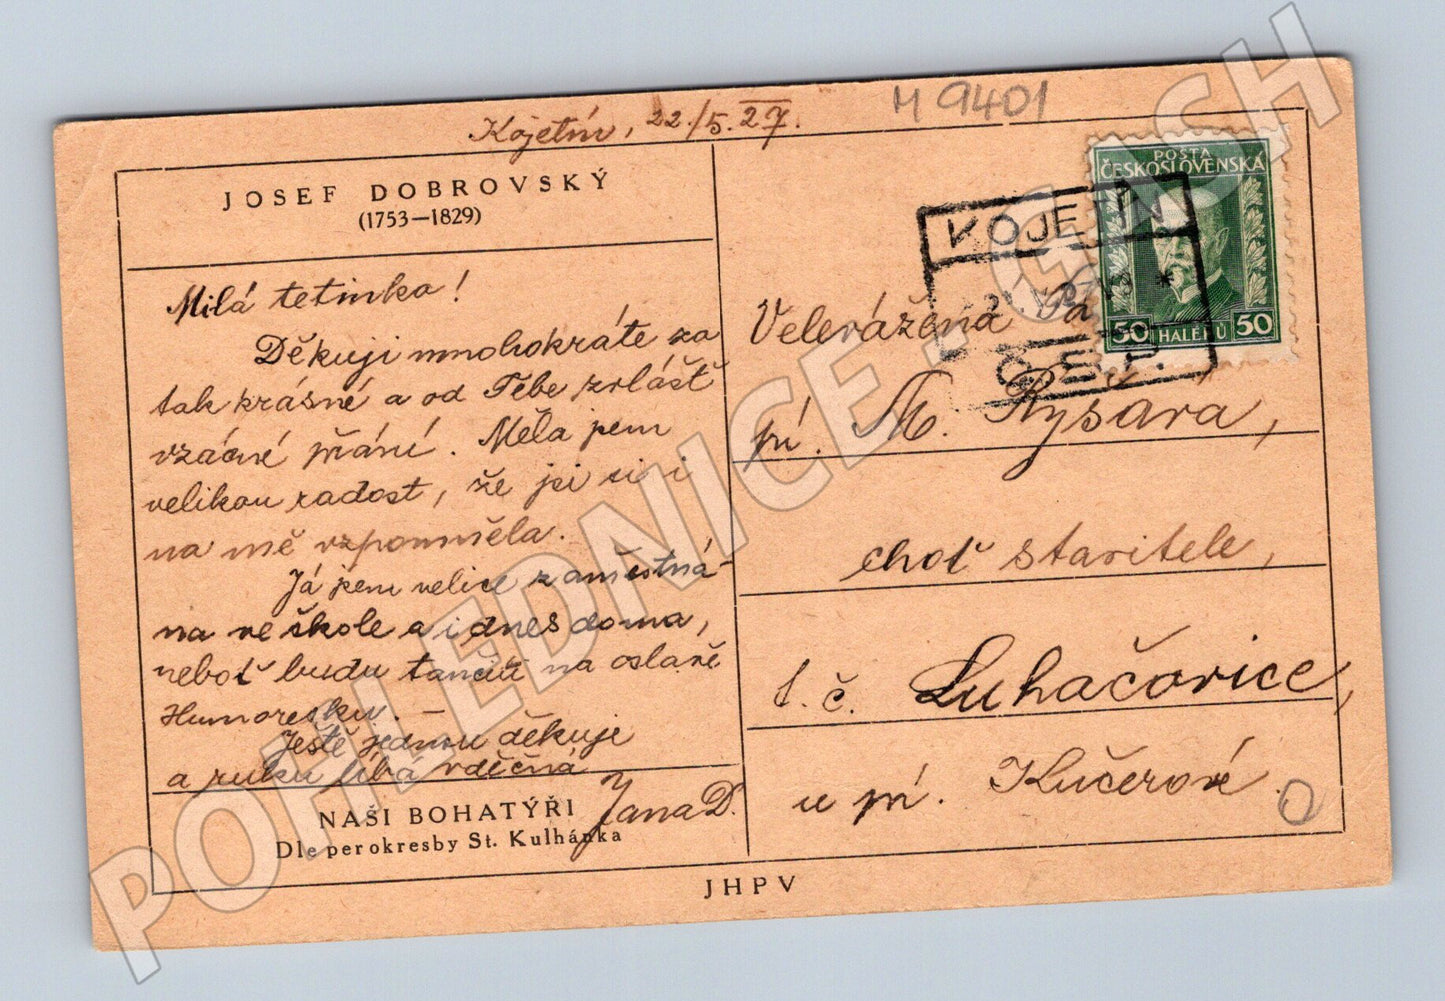 M 9401
Kojetín, 22./5.27.
JOSEF DOBROVSKÝ
(1753—1829)
Milá tetinko!
Děkuji mnohokráte za
tak krásné a od Tebe zvlášť
vzácné přání. Měla jsem
velikou radost, že jsi si i
na mě vzpomněla.
Já jsem velice zaměstná-
na ve škole a i dnes doma,
neboť budu tančit na oslavě
Humoresku. —
Ještě jednou děkuje
a ruku líbá vděčná
Jana D.
NAŠI BOHATÝŘI
Dle perokresby St. Kulhánka
JHPV
POŠTA
ČESKOSLOVENSKÁ
50 HALÉŘŮ 50
KOJETÍN
ČSP.
Velevážená Pa
pí. M. Rysova,
choť stavitele,
t. č. Luhačovice,
u pí. Kučerové
POHLEDNICE-SBERATEL